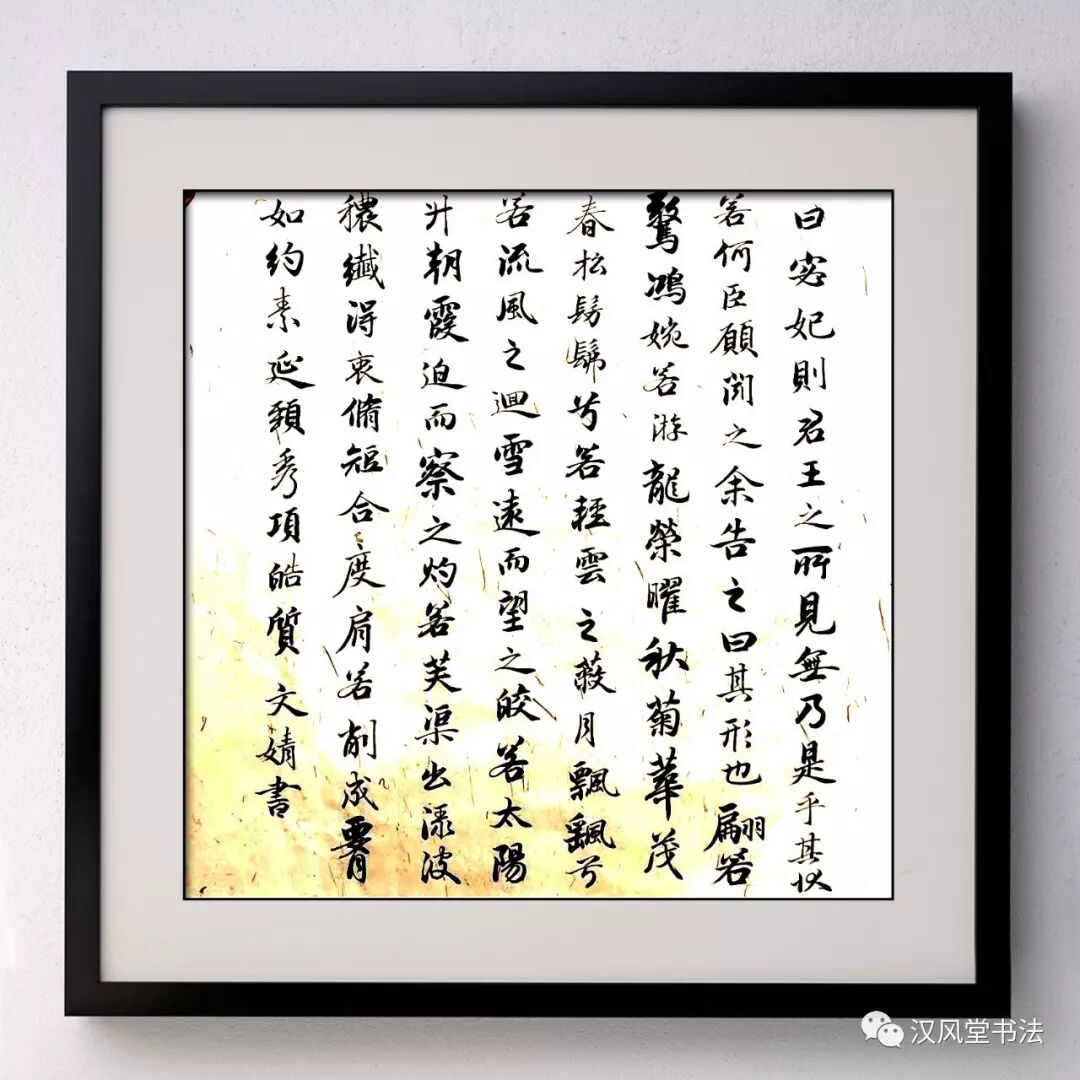 曰宓妃則君王之所見無乃是乎其狀
若何臣願聞之余告之曰其形也翩若
驚鴻婉若游龍榮曜秋菊華茂
春松髣髴兮若輕雲之蔽月飄颻兮
若流風之迴雪遠而望之皎若太陽
升朝霞迫而察之灼若芙渠出淥波
穠纖得衷脩短合度肩若削成腰
如約素延頸秀項皓質 文婧書
汉风堂书法